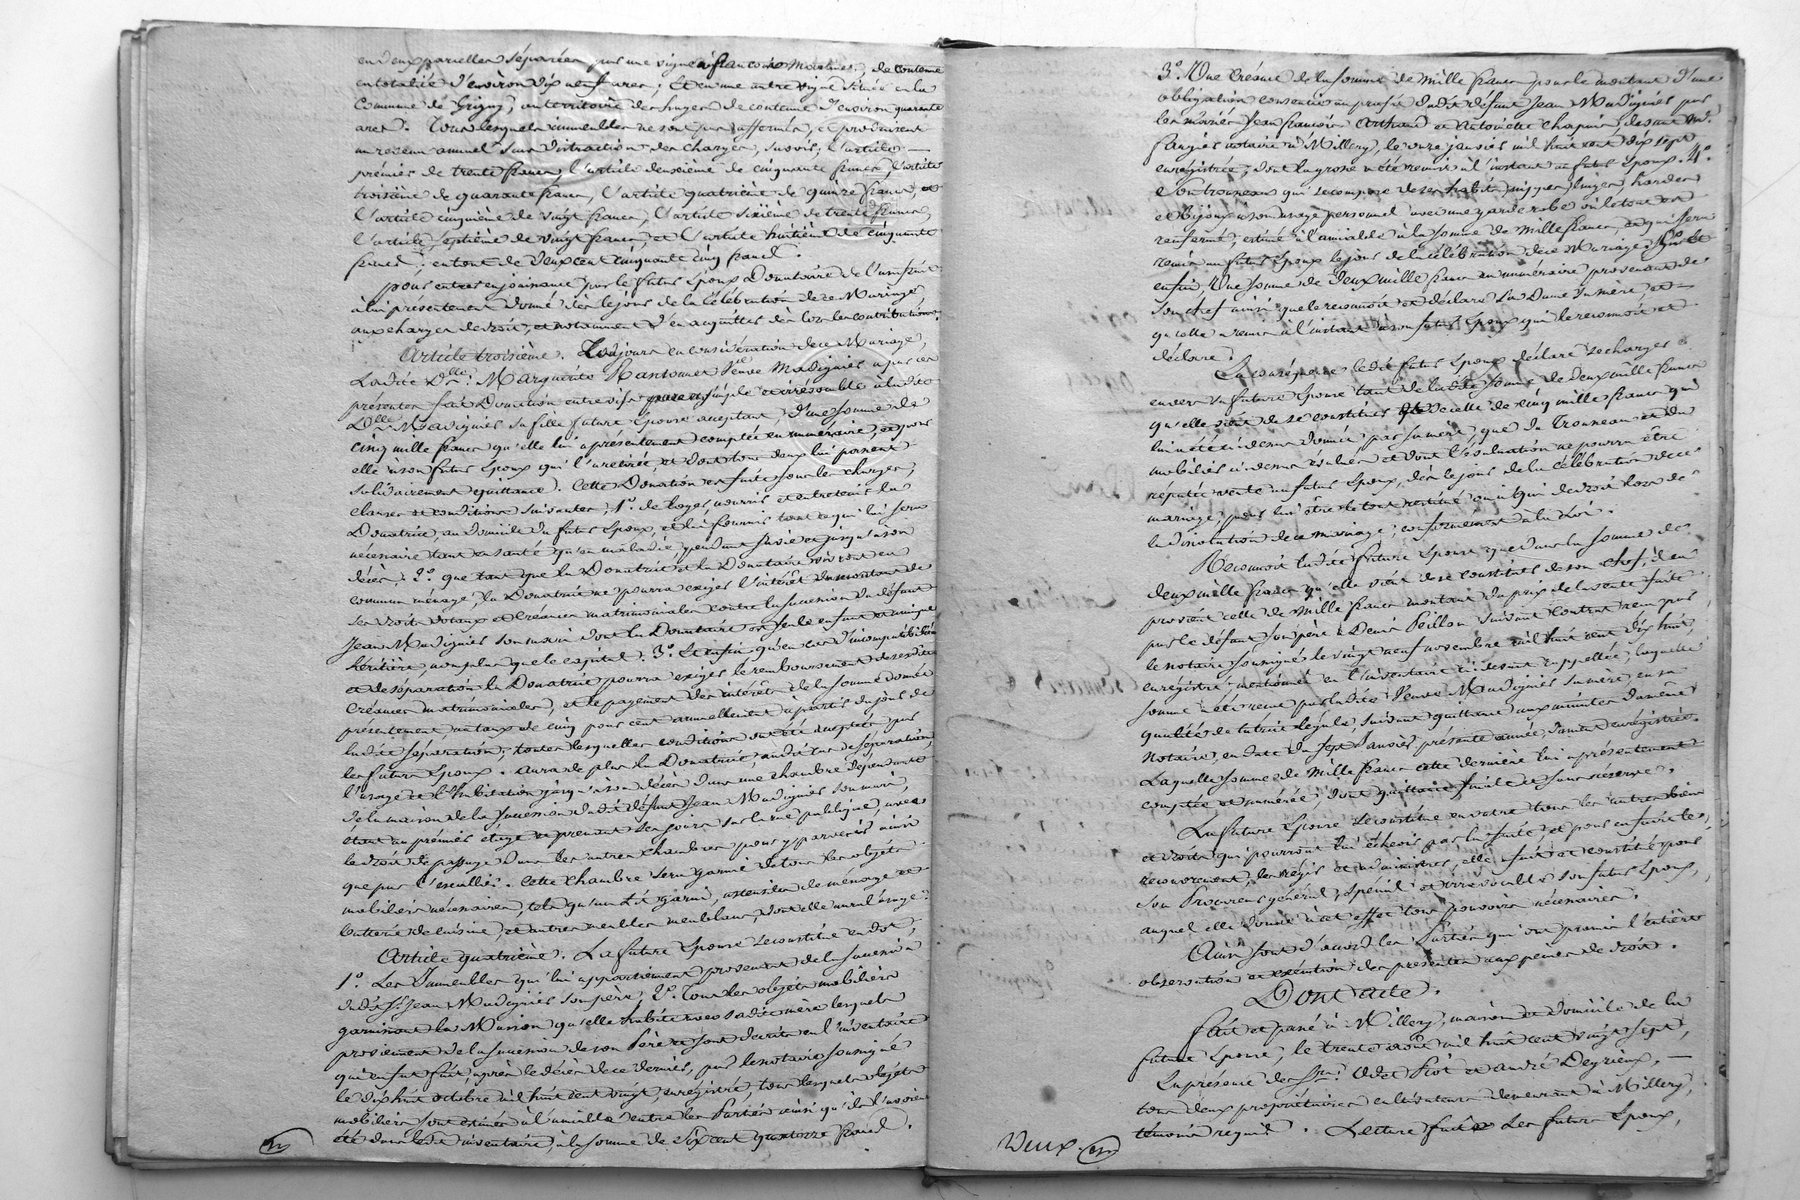 en deux parcelles séparées par une vigne à françois Molière, de contenue
en totalité d'environ dix neuf ares; Et en une autre vigne située en la
Commune de Grigny, au territoire des de contenue d'environ quarante
ares. Tous lesquels immeubles ne sont pas affermés, et produisent
un revenu annuel sans distraction des charges, savoir, l'article
premier de trente francs, l'article deuxième de cinquante francs, l'article
troisième de quarante francs, l'article quatrième de quinze francs, et
l'article cinquième de vingt francs, l'article sixième de trente francs,
l'article septième de vingt francs, et l'article huitième de cinquante
francs; en tout de deux cent cinquante cinq francs.
pour entrer en jouissance par le futur Epoux Donataire de l'usufruit
à lui présentement donné dès le jour de la célébration de ce Mariage
aux charges de droit, et notamment d'en acquitter dès lors les contributions.
Article troisième. Toujours en considération de ce Mariage,
Ladite D.lle Marguerite Ransonnet Veuve Madignier a par ces
présentes fait Donation entre vifs pure et simple et irrévocable à ladite
D.lle Madignier sa fille future Epouse acceptant, d'une somme de
cinq mille francs qu'elle lui a présentement comptée en numéraire, et pour
elle à son futur Epoux qui l'a retirée et dont tous deux lui passent
solidairement quittance. Cette Donation est faite sous les charges,
clauses et conditions suivantes, 1.º de loger, nourrir et entretenir la
Donatrice, au domicile du futur Epoux, et lui fournir tout ce qui lui sera
nécessaire tant en santé qu'en maladie, pendant sa vie et jusqu'à son
décès. 2.º que tant que la Donatrice et la Donataire vivront en
commun ménage, la Donatrice ne pourra exiger l'intérêt du montant de
ses droits dotaux et créances matrimoniales contre la succession du défunt
Jean Madignier son mari dont la Donataire est seule enfant et unique
héritière, non plus que le capital. 3.º Et enfin qu'en cas d'incompatibilité
et de séparation la Donatrice pourra exiger le remboursement de ses dites
Créances matrimoniales, et le payement des intérêts de la somme donnée
présentement, au taux de cinq pour cent annuellement à partir du jour de
ladite séparation; toutes lesquelles conditions ont été acceptées par
les futurs Epoux. aura de plus la Donatrice, audit cas de séparation,
l'usage et l'habitation jusqu'à son décès dans une chambre dépendante
de la maison de la succession dudit défunt Jean Madignier son mari,
étant au premier étage et prenant ses jours sur la rue publique, avec
le droit de passage dans les autres chambres pour y parvenir ainsi
que par l'escallier. Cette chambre sera garnie de tous les objets
mobiliers nécessaires, tels qu'un Lit garni, ustensiles de ménage et
batterie de cuisine, et autres meubles meublans, dont elle aura l'usage.
Article quatrième. La future Epouse se constitue en dot,
1.º Les Immeubles qui lui appartiennent provenant de la succession
dudit S.r Jean Madignier son père, 2.º Tous les objets mobiliers
garnissant la Maison qu'elle habite avec sadite mère lesquels
proviennent de la succession de son Père et sont décrits en l'inventaire
qui en fut fait, après le décès de ce dernier, par le notaire soussigné
le dix huit octobre mil huit cent vingt, enregistré, tous lesquels objets
mobiliers sont estimés à l'amiable entre les Parties ainsi qu'ils l'avoient
été dans ledit inventaire, à la somme de Six cent quatorze francs.
3.º Une Créance de la somme de mille francs pour le montant d'une
obligation consentie au profit dudit défunt Jean Madignier par
les mariés Jean françois Arthaud et Antoinette Chapuis, devant M.e
farges notaire à Millery, le onze janvier mil huit cent dix sept
enregistrée, dont la grosse a été remise à l'instant au futur Epoux. 4.º
Son trousseau qui se compose de ses habits, nippes, linges, hardes
et bijoux à son usage personnel avec une garde robe où le tout est
renfermé, estimé à l'amiable à la somme de mille francs, et qui sera
remis au futur Epoux le jour de la célébration de ce Mariage. 5.º Et
enfin Une somme de Deux mille francs en numéraire provenant de
son chef ainsi que le reconnoit et déclare La Dame sa mère, et
qu'elle a remise à l'instant à son futur Epoux qui le reconnoit et
déclare.
En conséquence ledit futur Epoux déclare se charger
envers sa future Epouse tant de ladite somme de Deux mille francs
qu'elle vient de se constituer que de celle de cinq mille francs qui
lui a été ci dessus donnée par sa mère, que du Trousseau et du
mobilier ci dessus évalués et dont l'évaluation ne pourra être
réputée vente au futur Epoux, dès le jour de la célébration de ce
mariage, pour lui être le tout restitué ou à qui de droit lors de
la dissolution de ce mariage, conformément à la Loi.
Reconnoit ladite future Epouse que dans la somme de
deux mille francs qu'elle vient de se constituer de son chef, il en
provient celle de mille francs montant du prix de la vente faite
par le défunt son père à Denis Peillon suivant Contrat reçu par
le notaire soussigné le vingt neuf novembre mil huit cent dix huit,
enregistré, mentionné en l'inventaire ci devant rappellé, laquelle
somme a été reçue par ladite Veuve Madignier sa mère, en sa
qualité de tutrice légale, suivant quittance aux minutes du même
Notaire, en date du sept Janvier présente année, dument enregistrée.
Laquelle somme de Mille francs cette dernière lui a présentement
comptée et numérée, dont quittance finale et sans réserve.
La future Epouse se constitue en outre tous les autres biens
et droits qui pourront lui échoir par la suite, et pour en faire les
recouvremens, les régir et administrer, elle fait et constitue pour
son Procureur général, spécial et irrévocable son futur Epoux,
auquel elle donne à cet effet tous pouvoirs nécessaires.
Ainsi sont d'accord les Parties qui ont promis l'entière
observation et exécution des présentes aux peines de droit.
Dont acte.
fait et passé à Millery, maison et domicile de la
future Epouse, le trente août mil huit cent vingt sept,
En présence des S.rs Odet Piot et André Deyrieux,
tous deux propriétaires cultivateurs demeurant à Millery,
témoins requis. Lecture faite Les futurs Epoux,
Deux.